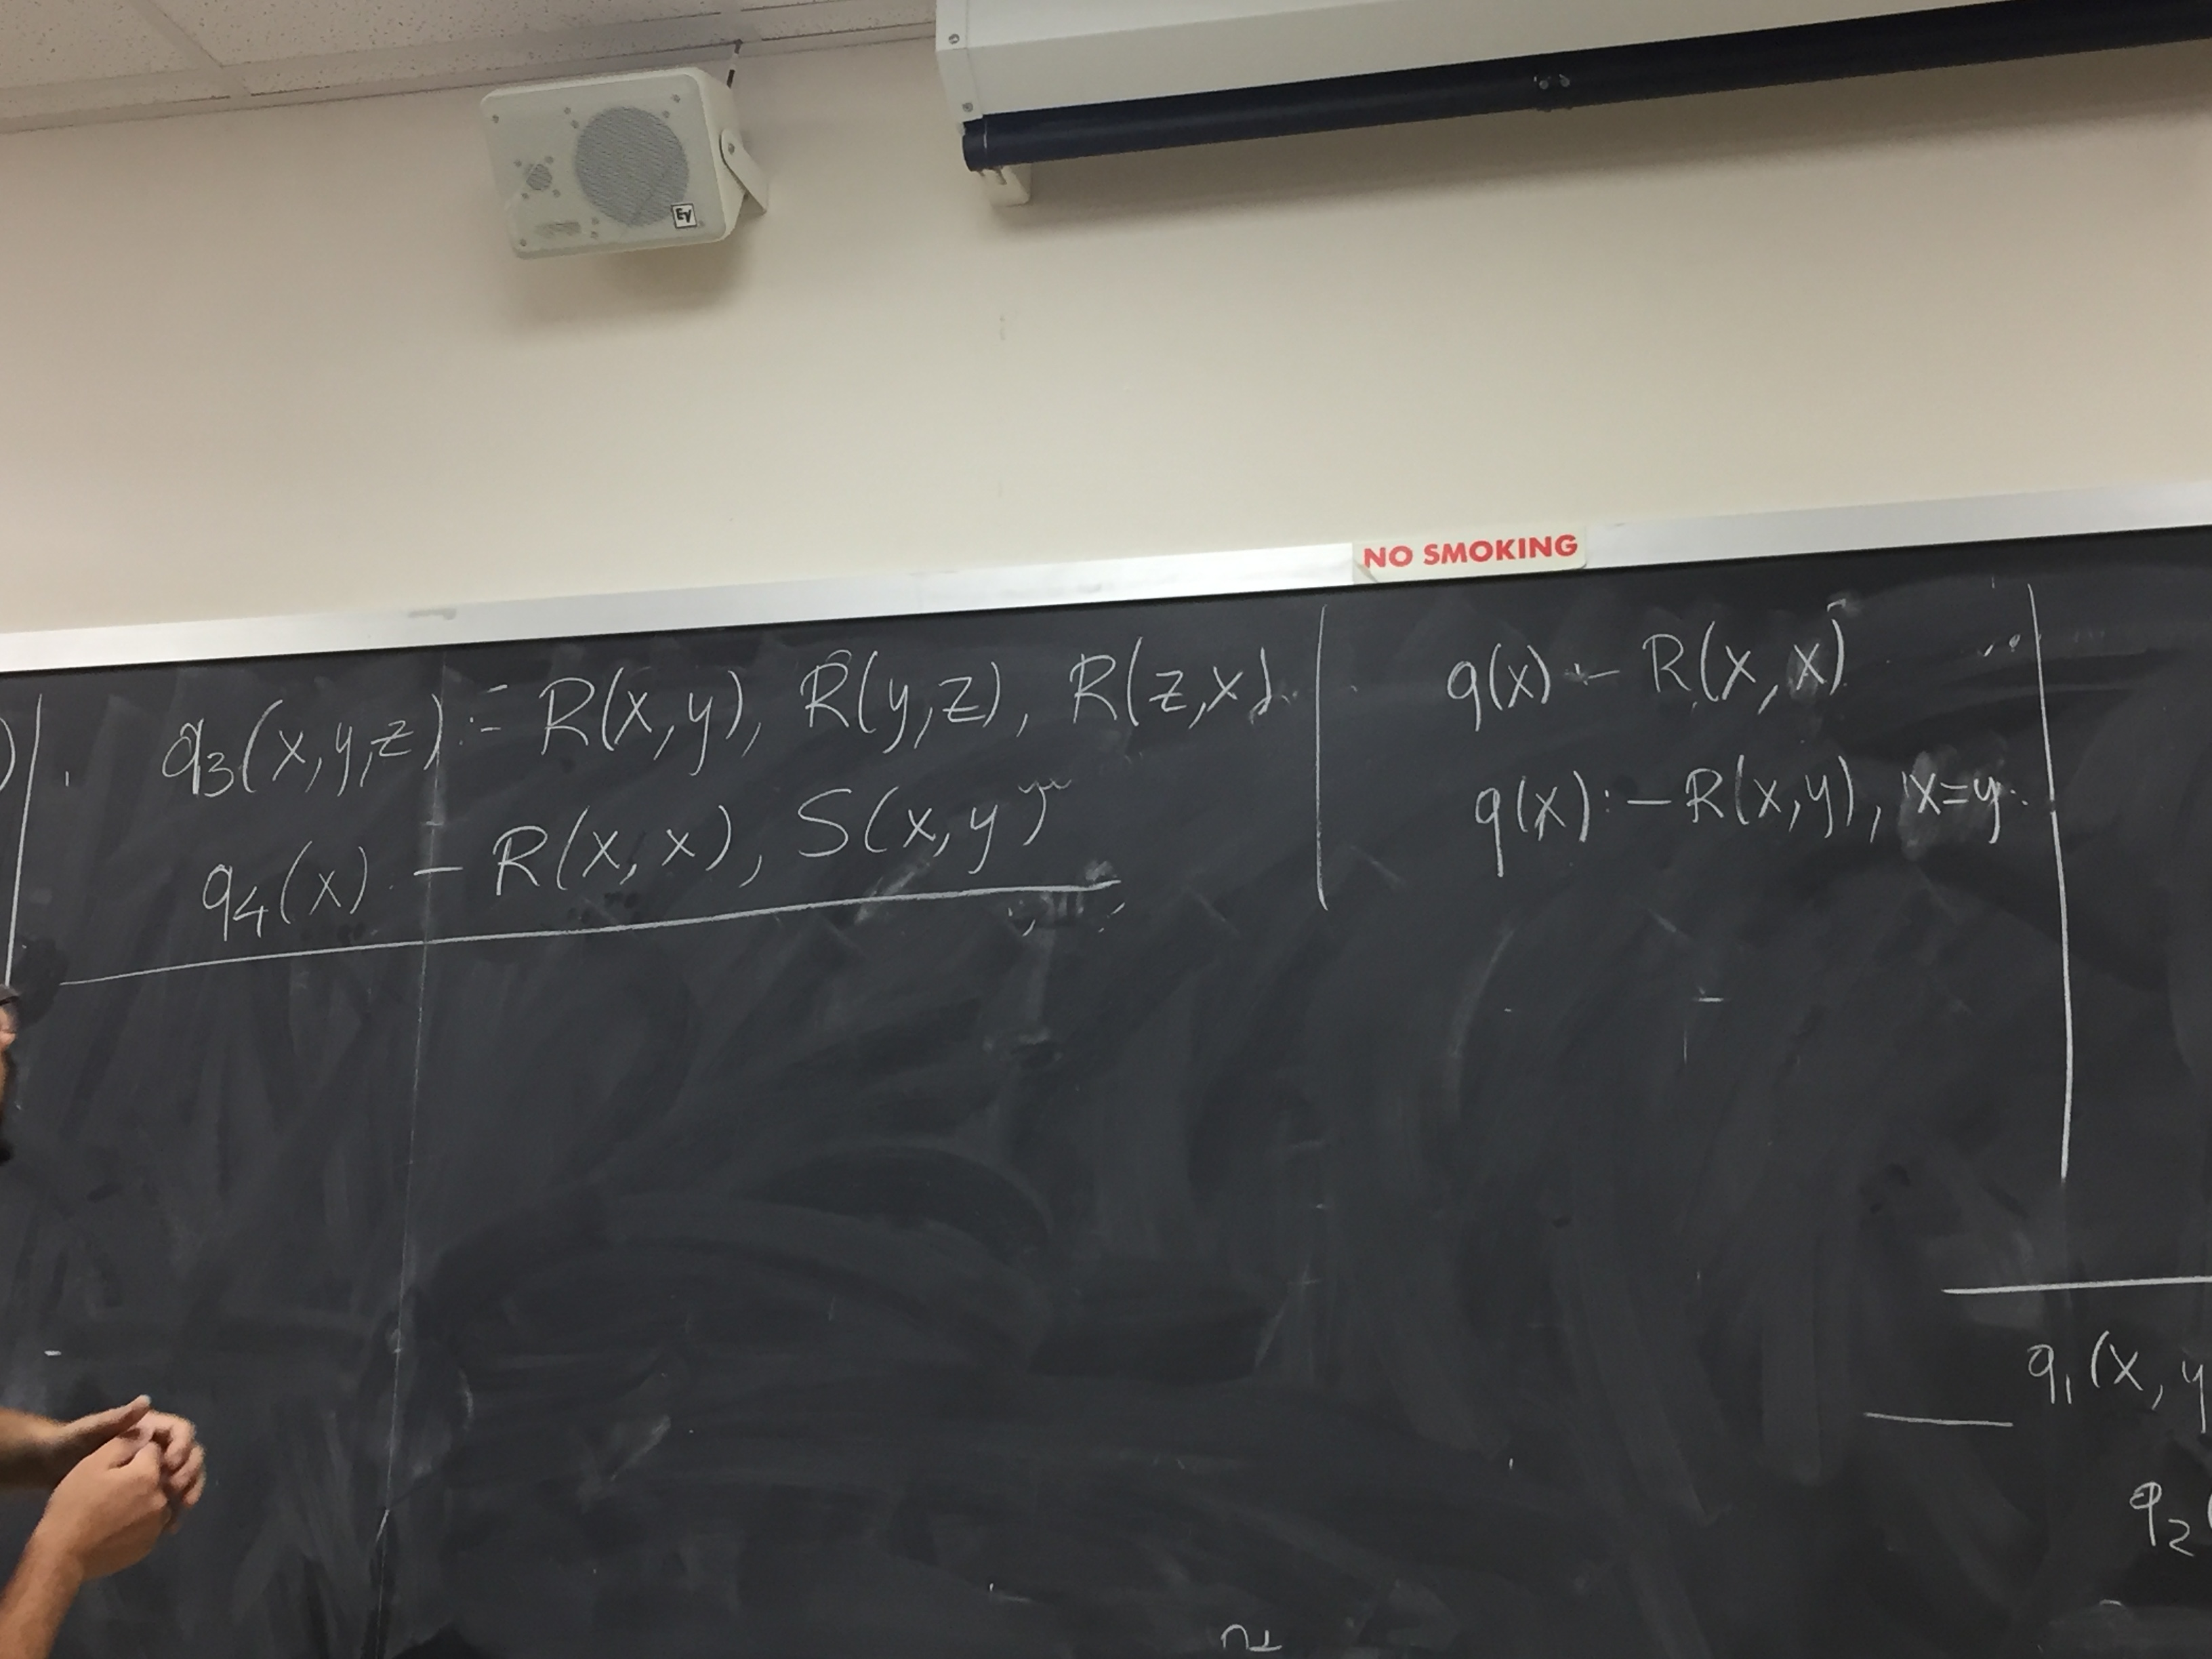 EV
NO SMOKING
q₃(x,y,z) :- R(x,y), R(y,z), R(z,x).
q₄(x) :- R(x,x), S(x,y)
q(x) :- R(x,x)
q(x) :- R(x,y), x=y.
q₁(x, y
q₂(